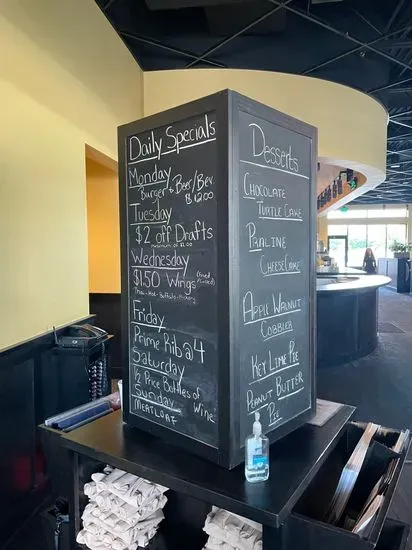 Daily Specials
Monday
Burger & Beer/Bev.
$12.00
Tuesday
$2 off Drafts
Wednesday
$1.50 Wings
Friday
Prime Rib @ 4
Saturday
1/2 Price Bottles of
Wine
Sunday
Meatloaf
Desserts
Chocolate
Turtle Cake
Praline
Cheesecake
Apple Walnut
Cobbler
Key Lime Pie
Peanut Butter
Pie